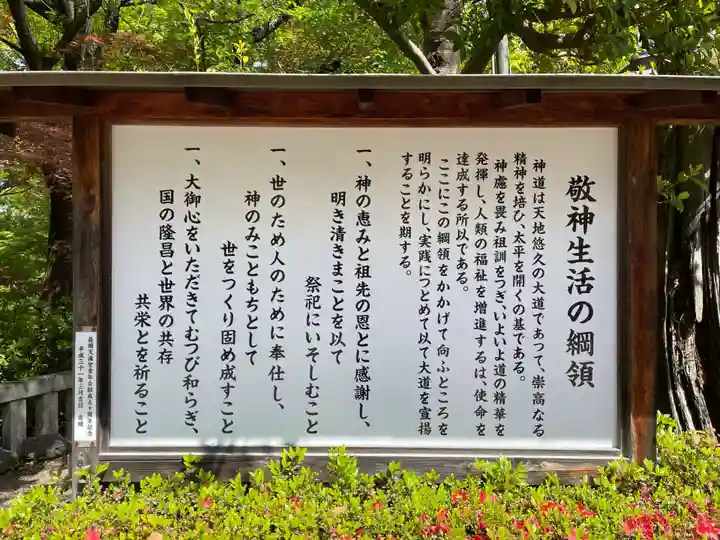 敬神生活の綱領
神道は天地悠久の大道であつて、崇高なる
精神を培ひ、太平を開くの基である。
神慮を畏み祖訓をつぎ、いよいよ道の精華を
発揮し、人類の福祉を増進するは、使命を
達成する所以である。
ここにこの綱領をかかげて向ふところを
明らかにし、実践につとめて以て大道を宣揚
することを期する。
一、神の恵みと祖先の恩とに感謝し、
明き清きまことを以て
祭祀にいそしむこと
一、世のため人のために奉仕し、
神のみこともちとして
世をつくり固め成すこと
一、大御心をいただきてむつび和らぎ、
国の隆昌と世界の共存
共栄とを祈ること
平成三十一年三月吉日